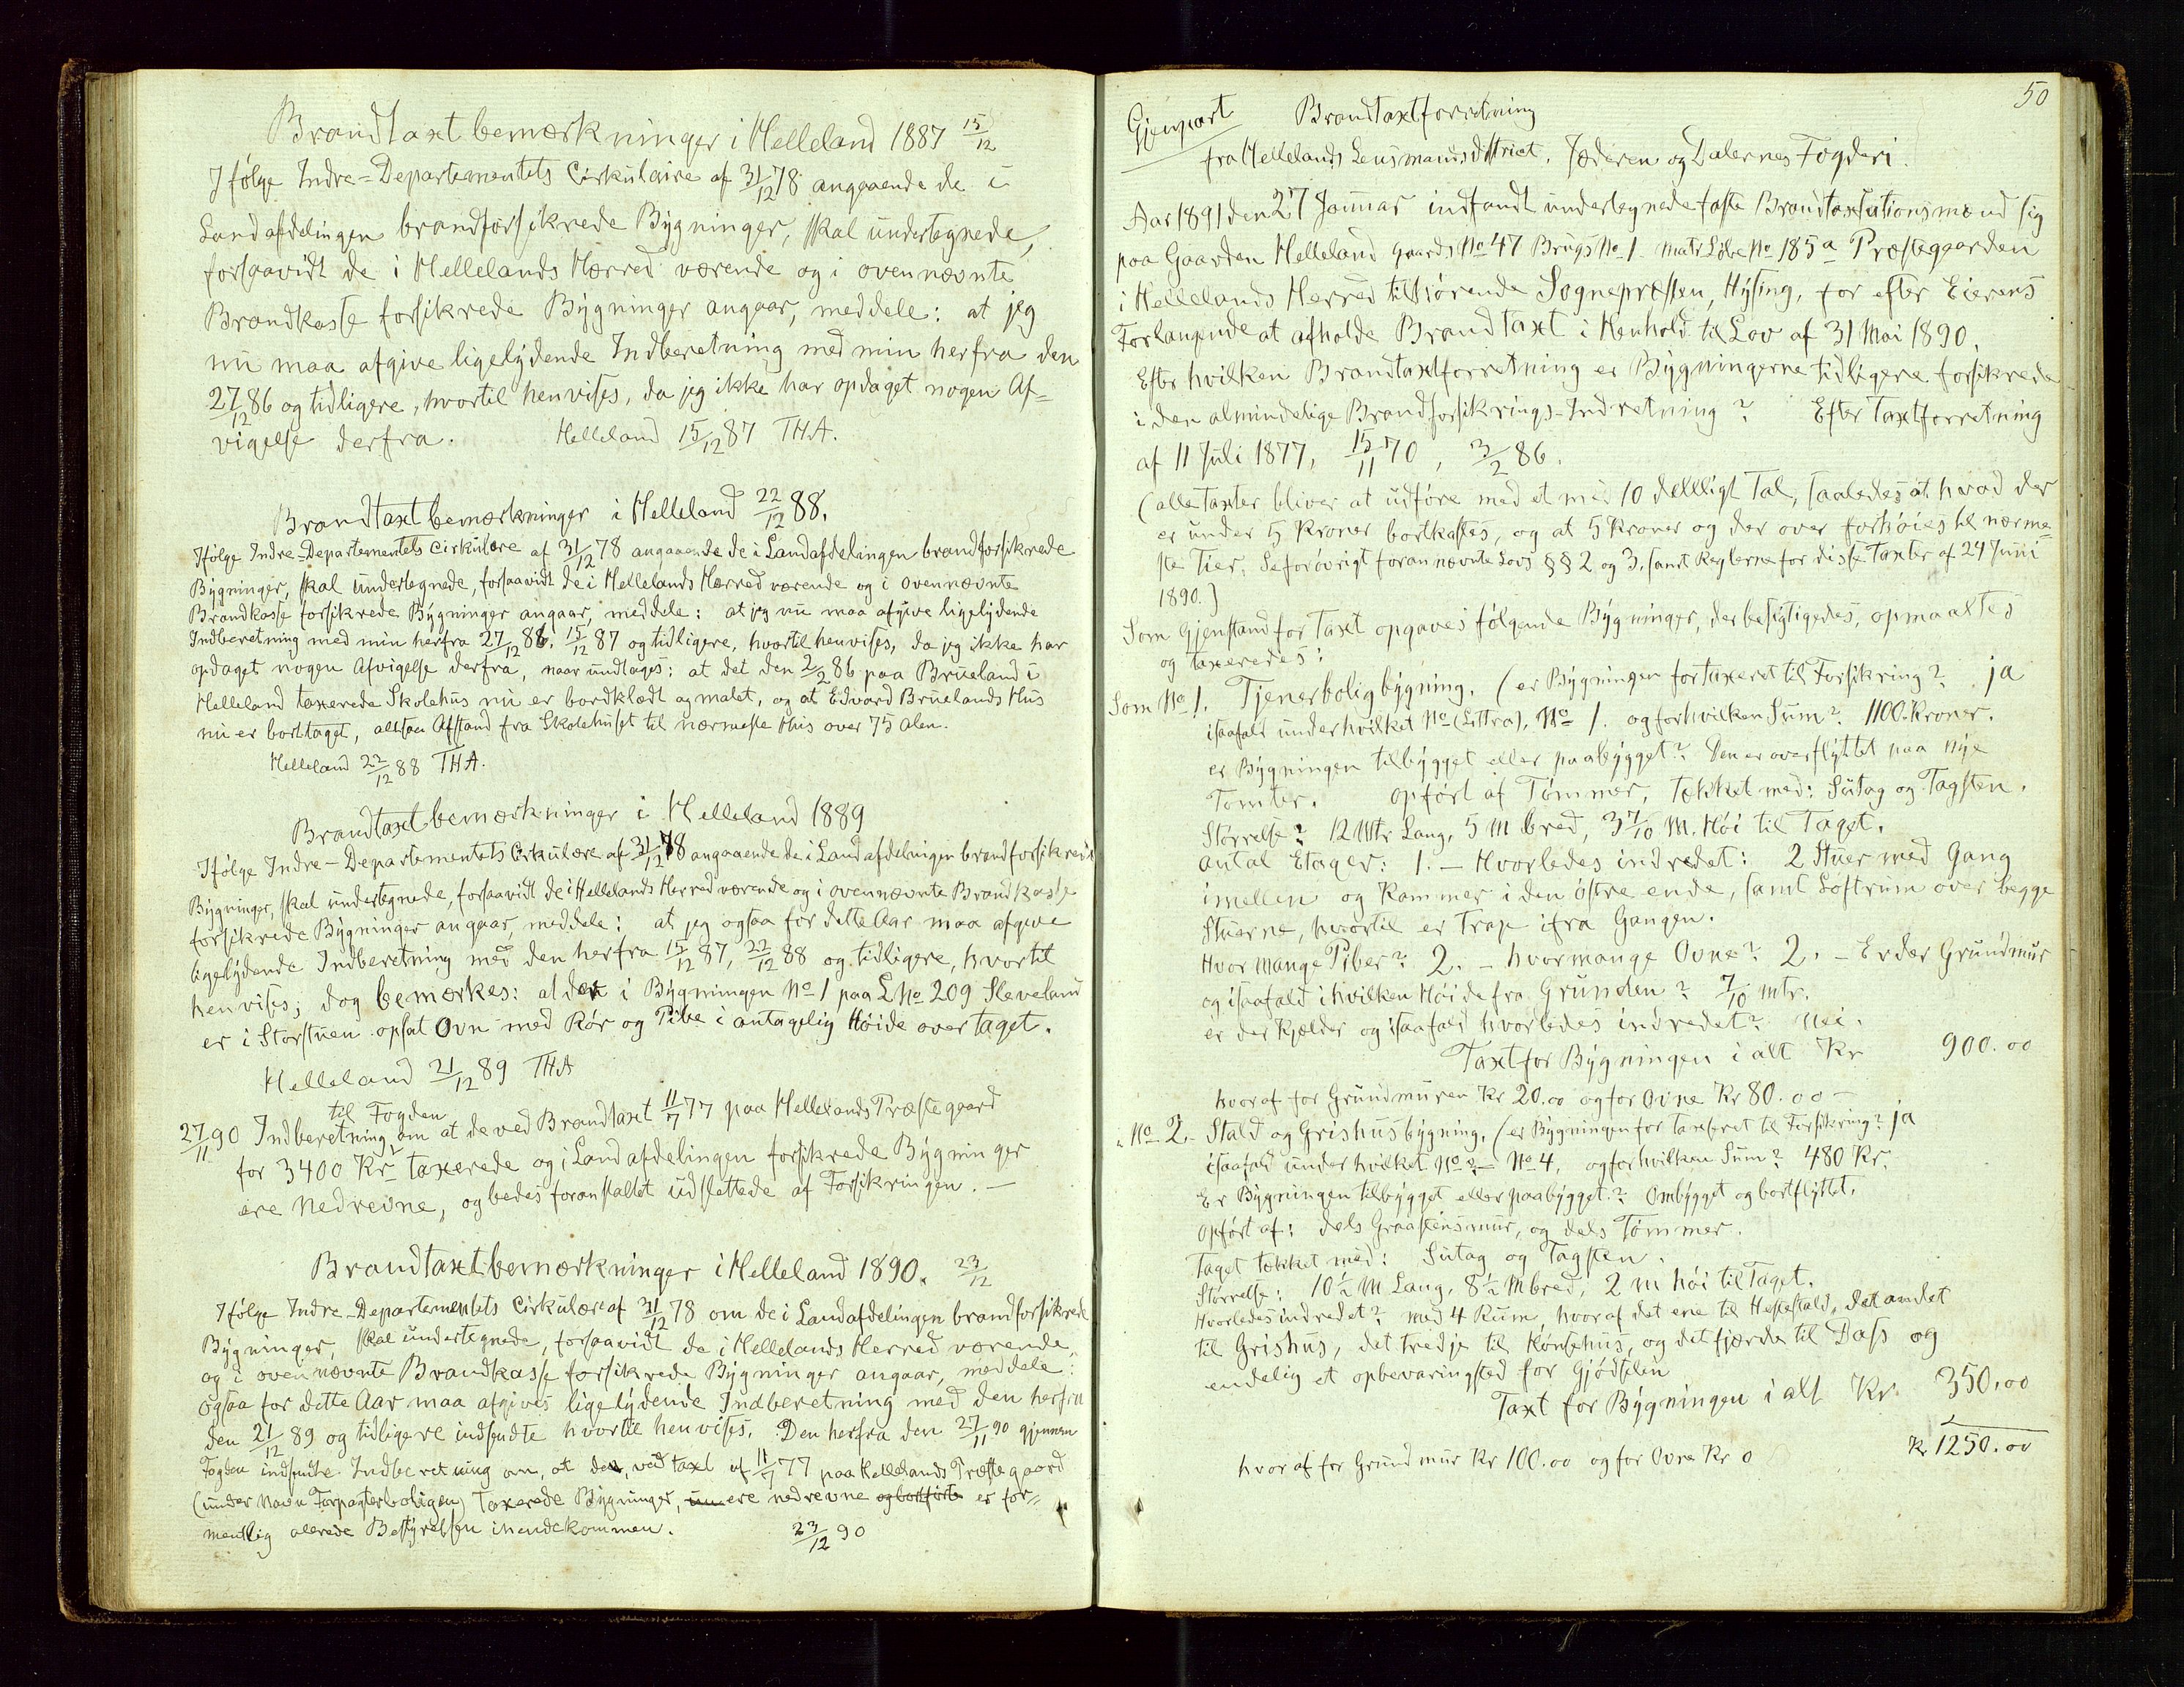 Brandtaxtbemærkninger i Helleland 1887 15/12
Ifølge Indre-Departementets Cirkulaire af 31/12 78 angaaende de i
Landafdelingen brandforsikrede Bygninger, skal undertegnede,
forsaavidt de i Hellelands Herred værende og i ovennævnte
Brandkasse forsikrede Bygninger angaar, meddele: at jeg
nu maa afgive ligelydende Indberetning med min herfra den
27/12 86 og tidligere, hvortil henvises, da jeg ikke har opdaget nogen Af=
vigelse derfra. Helleland 15/12 87 THA.
Brandtaxtbemærkninger i Helleland 22/12 88.
Ifølge Indre-Departementets Cirkulære af 31/12 78 angaaende de i Landafdelingen brandforsikrede
Bygninger, skal undertegnede, forsaavidt de i Hellelands Herred værende og i ovennævnte
Brandkasse forsikrede Bygninger angaar, meddele: at jeg nu maa afgive ligelydende
Indberetning med min herfra 27/12 86, 15/12 87 og tidligere, hvortil henvises, da jeg ikke har
opdaget nogen Afvigelse derfra, naar undtages: at det den 2/2 86 paa Brueland i
Helleland taxerede Skolehus nu er bordklædt og malet, og at Edvard Bruelands Hus
nu er borttaget, altsaa Afstand fra Skolehuset til nærmeste Hus over 75 alen.
Helleland 22/12 88 THA.
Brandtaxtbemærkninger i Helleland 1889
Ifølge Indre-Departementets Cirkulære af 31/12 78 angaaende de i Landafdelingen brandforsikrede
Bygninger, skal undertegnede, forsaavidt de i Hellelands Herred værende og i ovennævnte Brandkasse
forsikrede Bygninger angaar, meddele: at jeg ogsaa for dette Aar maa afgive
ligelydende Indberetning med den herfra 15/12 87, 22/12 88 og tidligere, hvortil
henvises; dog bemærkes: at der i Bygningen No 1 paa L No 209 Sleveland
er i Storstuen opsat Ovn med Rør og Pibe i antagelig Høide over taget.
Helleland 21/12 89 THA
til Fogden
27/11 90 Indberetning om at de ved Brandtaxt 11/7 77 paa Hellelands Præstegaard
for 3400 Kr taxerede og i Landafdelingen forsikrede Bygninger
ere nedrevne, og bedes foranstaltet udslettede af Forsikringen. —
Brandtaxtbemærkninger i Helleland 1890. 23/12
Ifølge Indre-Departementets Cirkulære af 31/12 78 om de i Landafdelingen brandforsikrede
Bygninger, skal undertegnede, forsaavidt de i Hellelands Herred værende,
og i ovennævnte Brandkasse forsikrede Bygninger angaar, meddele:
ogsaa for dette Aar maa afgives ligelydende Indberetning med den herfra
den 21/12 89 og tidligere indsendte hvortil henvises. Den herfra den 27/11 90 gjennem
Fogden indsendte Indberetning om, at de, ved taxt af 11/7 77 paa Hellelands Præstegaard
(under Navn Forpagterboligen) taxerede Bygninger, ere nedrevne og bortførte er for=
mentlig allerede Bestyrelsen ihændekommen. 23/12 90
50
Gjenpart Brandtaxtforretning
fra Hellelands Lensmandsdistrict, Jæderen og Dalernes Fogderi.
Aar 1891 den 27 Januar indfandt undertegnede faste Brandtaxtationsmænd sig
paa Gaarden Helleland Gaards No 47 Brugs No 1. Matr Løbe No 185a Præstegaarden
i Hellelands Herred tilhørende Sognepræsten, Hysing, for efter Eierens
Forlangende at afholde Brandtaxt i Henhold til Lov af 31 Mai 1890.
Efter hvilken Brandtaxtforretning er Bygningerne tidligere forsikrede
i den almindelige Brandforsikrings-Indretning? Efter Taxtforretning
af 11 Juli 1877, 15/11 70, 3/2 86.
(alle Taxter bliver at udføre med et med 10 deleligt Tal, saaledes at hvad der
er under 5 Kroner bortkastes, og at 5 Kroner og der over forhøies til nærme=
ste Tier. Se forøvrigt forannævnte Lovs §§ 2 og 3, samt Reglerne for disse Taxter af 24 Juni
1890.)
Som Gjenstand for Taxt opgaves følgende Bygninger, der besigtigedes, opmaaltes
og taxeredes:
Som No 1. Tjenerboligbygning. (er Bygningen for taxeret til Forsikring? ja
isaafald under hvilket No (Littra), No 1. og for hvilken Sum? 1100 Kroner.
er Bygningen tilbygget eller paabygget? Den er overflyttet paa nye
Tomter. opført af Tømmer, tækket med: Sutag og Tagsten.
Størrelse? 12 Mtr Lang, 5 M bred, 3 7/10 M. Høi til Taget.
antal Etager: 1. — Hvorledes indredet: 2 Stuer med Gang
imellem og Kammer i den østre ende, samt Loftrum over begge
Stuerne, hvortil er Trap ifra Gangen.
Hvor mange Piber? 2. — hvormange Ovne? 2. — Er der Grundmur
og isaafald i hvilken Høide fra Grunden? 7/10 mtr.
er der Kjælder og isaafald hvorledes indredet? Nei.
Taxt for Bygningen i alt Kr 900.00
hvoraf for Grundmuren Kr 20.00 og for Ovne Kr 80.00 —
" No 2. Stald og Grishusbygning, (er Bygningen for taxeret til Forsikring? ja
isaafald under hvilket No? — No 4, og for hvilken Sum? 480 Kr.
Er Bygningen tilbygget eller paabygget? Ombygget og bortflyttet.
opført af: dels Graastensmur, og dels Tømmer.
Taget tækket med: Sutag og Tagsten.
Størrelse: 10 1/2 M Lang, 8 1/2 M bred, 2 m høi til Taget.
Hvorledes indredet? med 4 Rum, hvoraf det ene til Hestestald, det andet
til Grishus, det tredje til Hønsehus, og det fjærde til Dass og
endelig et opbevaringsted for Gjødselen
Taxt for Bygningen i alt Kr. 350.00
Kr 1250.00
hvoraf for Grundmur Kr 100.00 og for Ovne Kr 0